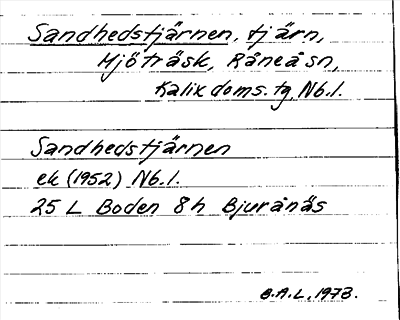 Sandhedstjärnen, tjärn,
Mjöträsk, Råneå sn,
Kalix doms. tg, Nb. l.
Sandhedstjärnen
ek (1952) Nb. l.
25 L Boden 8h Bjuränäs
B.A.L, 1973.